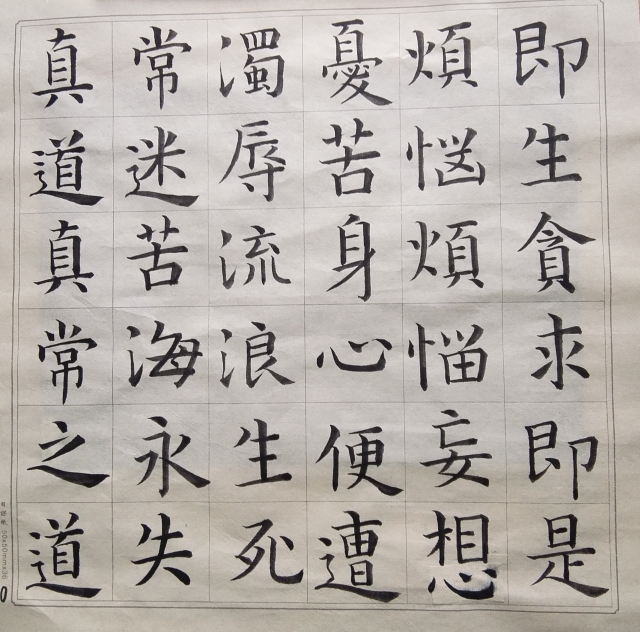 即生貪求即是
煩惱煩惱妄想
憂苦身心便遭
濁辱流浪生死
常迷苦海永失
真道真常之道
50x50mmx36